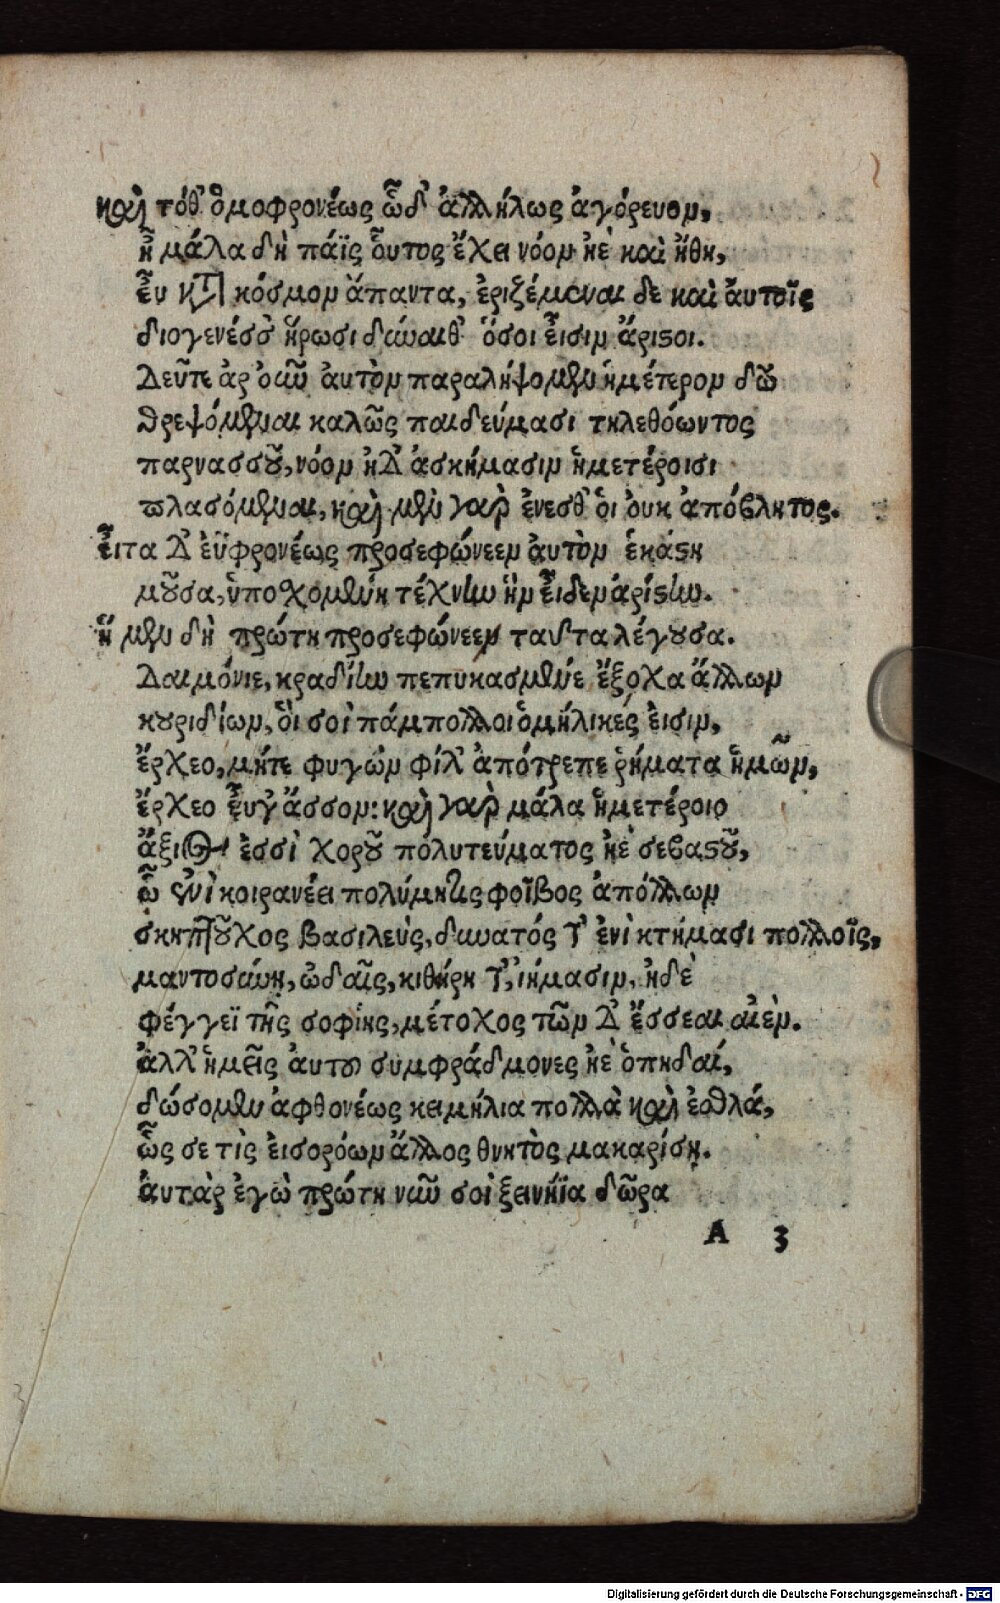 καὶ τόθ' ὁμοφρονέως ὧδ' ἀλλήλως ἀγόρευον,
ἦ μάλα δὴ πάϊς οὗτος ἔχει νόον ἠὲ καὶ ἤθη,
ἐῢ κατὰ κόσμον ἅπαντα, ἐριζέμεναι δε καὶ ἀυτοῖς
διογενέσσ' ἥρωσι δύναιθ' ὅσοι ἐισιν ἄριστοι.
Δεῦτε ἀρ' οὖν ἀυτὸν παραληψομεν ἡμέτερον δῶ
θρεψόμεναι καλῶς παιδεύμασι τηλεθόωντος
παρνασσοῦ, νόον ἠδ' ἀσκήμασιν ἡμετέροισι
πλασόμεναι, καὶ μὲν γὰρ ἐνεσθ' ὁι ὀυκ ἀπόβλητος.
εἶτα δ' ἐϋφρονέως προσεφώνεεν ἀυτὸν ἑκάστη
μοῦσα, ὑποσχομένη τέχνην ἣν ἐιδεν ἀρίστην.
ἣ μὲν δὴ πρώτη προσεφώνεεν ταῦτα λέγουσα.
Δαιμόνιε, κραδίην πεπυκασμένε ἔξοχα ἄλλων
κουριδίων, ὅι σοὶ πάμπολλοι ὁμήλικές ἐισιν,
ἔρχεο, μήτε φυγὼν φίλ' ἀπότρεπε ῥήματα ἡμῶν,
ἔρχεο ἐυγ' ἄσσον: καὶ γὰρ μάλα ἡμετέροιο
ἄξιος ἐσσὶ χοροῦ πολυτεύματος ἠὲ σεβαστοῦ,
ᾧ ἐνὶ κοιρανέει πολύμητις φοῖβος ἀπόλλων
σκηπτοῦχος βασιλεὺς, δυνατός τ' ἐνὶ κτήμασι πολλοῖς,
μαντοσύνη, ὠδαῖς, κιθάρη τ', ἰήμασιν, ἠδὲ
φέγγεϊ τῆς σοφίης, μέτοχος τῶν δ' ἔσσεαι αἰὲν.
ἀλλ' ἡμεῖς ἀυτου συμφράδμονες ἠὲ ὀπηδαί,
δώσομεν ἀφθονέως κειμήλια πολλὰ καὶ ἐσθλά,
ὥς σε τὶς ἐισορόων ἄλλος θνητὸς μακαρίσῃ.
ἀυτὰρ ἐγὼ πρώτη νῦν σοὶ ξεινήϊα δῶρα
A 3
Digitalisierung gefördert durch die Deutsche Forschungsgemeinschaft - DFG